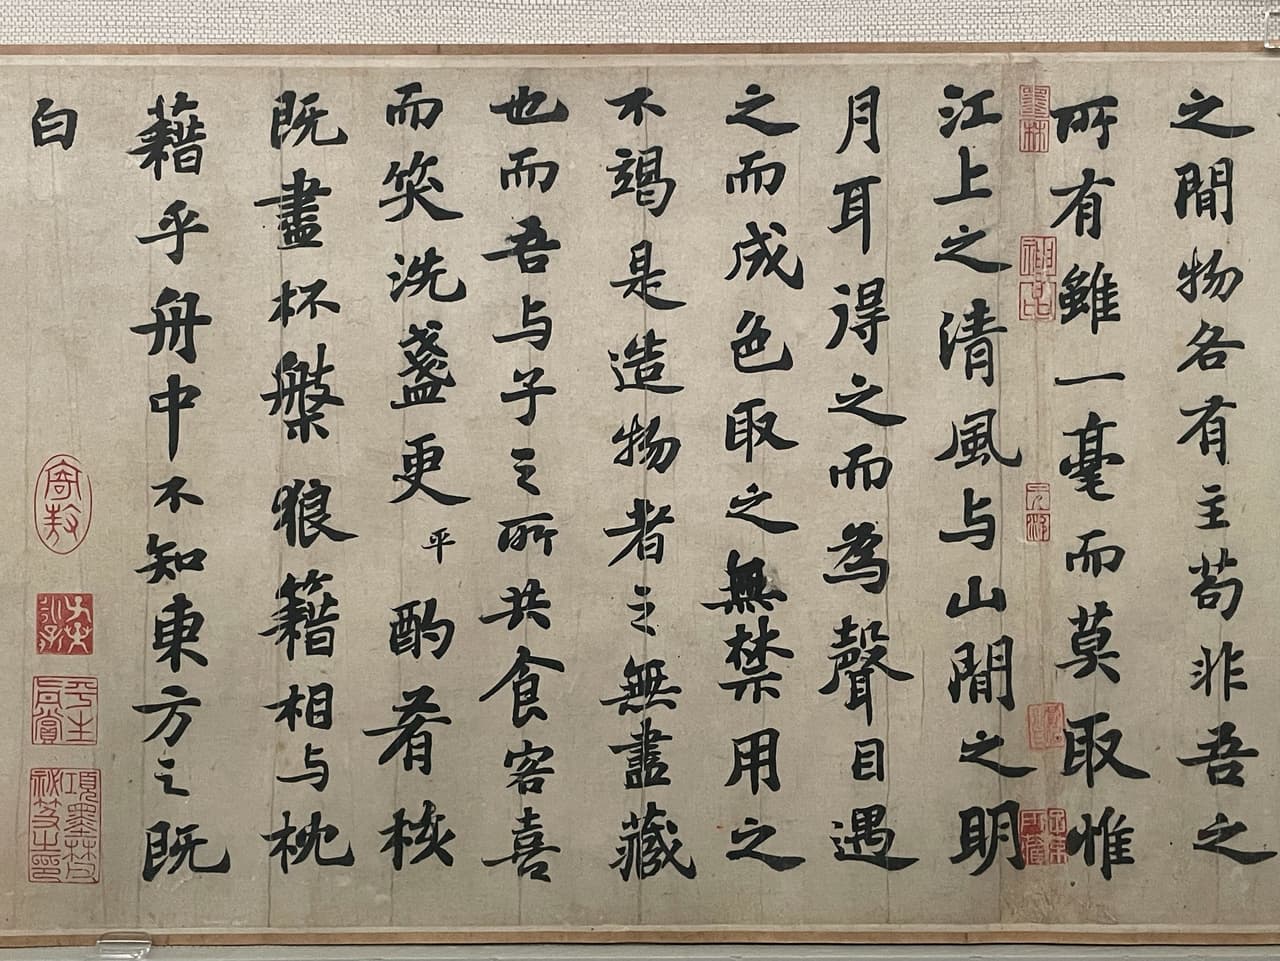 之閒物各有主苟非吾之
所有雖一毫而莫取惟
江上之清風与山閒之明
月耳得之而為聲目遇
之而成色取之無禁用之
不竭是造物者之無盡藏
也而吾与子之所共食客喜
而笑洗盞更平酌肴核
既盡杯槃狼籍相与枕
藉乎舟中不知東方之既
白
墨林
神品
寄敖
平生真賞
項墨林父祕笈之印